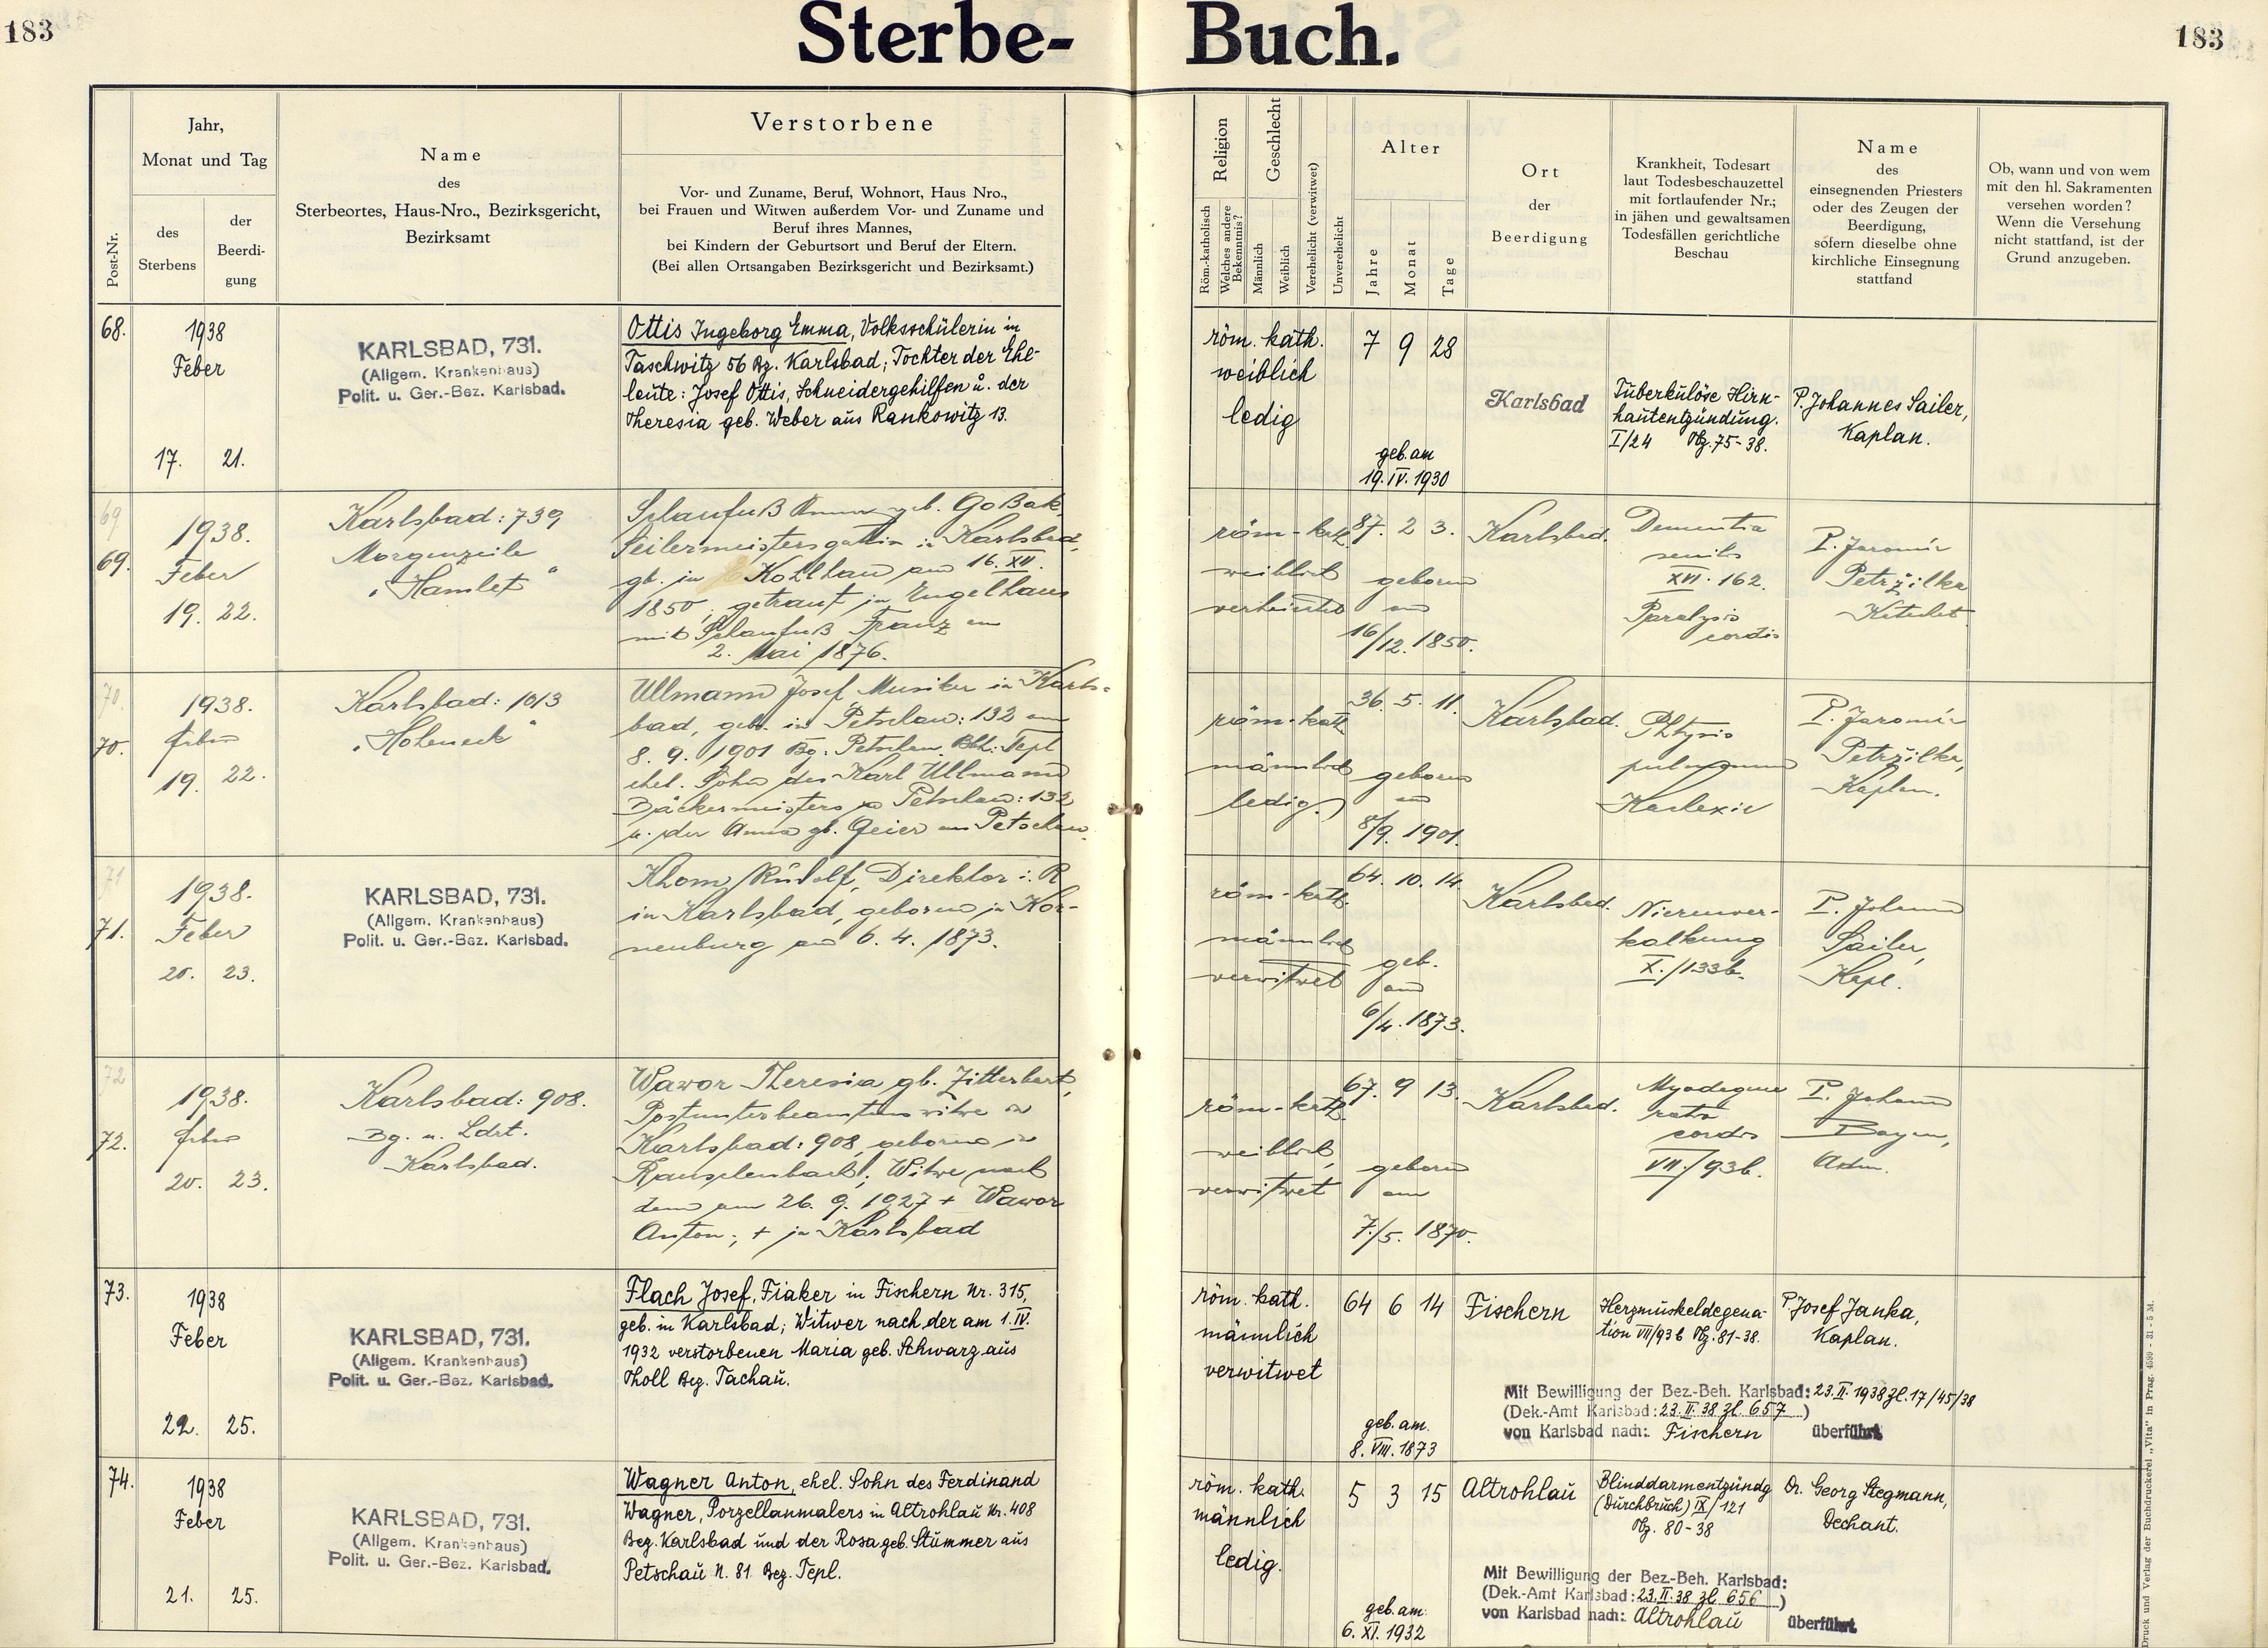 183
Sterbe-Buch.
183
Post-Nr.
Jahr,
Monat und Tag
des
Sterbens
der
Beerdi-
gung
Name
des
Sterbeortes, Haus-Nro., Bezirksgericht,
Bezirksamt
Verstorbene
Vor- und Zuname, Beruf, Wohnort, Haus Nro.,
bei Frauen und Witwen außerdem Vor- und Zuname und
Beruf ihres Mannes,
bei Kindern der Geburtsort und Beruf der Eltern.
(Bei allen Ortsangaben Bezirksgericht und Bezirksamt.)
Religion
Röm.-katholisch
Welches andere
Bekenntnis?
Geschlecht
Männlich
Weiblich
Verehelicht (verwitwet)
Unverehelicht
Alter
Jahre
Monat
Tage
Ort
der
Beerdigung
Krankheit, Todesart
laut Todesbeschauzettel
mit fortlaufender Nr.;
in jähen und gewaltsamen
Todesfällen gerichtliche
Beschau
Name
des
einsegnenden Priesters
oder des Zeugen der
Beerdigung,
sofern dieselbe ohne
kirchliche Einsegnung
stattfand
Ob, wann und von wem
mit den hl. Sakramenten
versehen worden?
Wenn die Versehung
nicht stattfand, ist der
Grund anzugeben.
68.
1938
Feber
17. 21.
KARLSBAD, 731.
(Allgem. Krankenhaus)
Polit. u. Ger.-Bez. Karlsbad.
Ottis Ingeborg Emma, Volksschülerin in
Taschwitz 56 Bz. Karlsbad; Tochter der Ehe-
leute: Josef Ottis, Schneidergehilfen u. der
Theresia geb. Weber aus Rankowitz 13.
röm. kath.
weiblich
ledig
7 9 28
geb. am
19. IV. 1930
Karlsbad
Tuberkulöse Hirn-
hautentzündung.
I/24 Obz. 75-38.
P. Johannes Sailer,
Kaplan.
69
69.
1938.
Feber
19. 22.
Karlsbad: 739
Morgenzeile
"Hamlet"
Schaufuß Anna geb. Goßak,
Seilermeistersgattin in Karlsbad,
gb. in Kohlhau am 16. XII.
1850; getraut in Engelhaus
mit Schaufuß Franz am
2. Mai 1876.
röm-kath.
weiblich
verheiratet
87. 2 3.
geboren
am
16/12. 1850.
Karlsbad.
Dementia
senilis
XVI. 162.
Paralysis
cordis
P. Jaromír
Petržilka
70.
70.
1938.
Feber
19. 22.
Karlsbad: 1013
"Hoheneck"
Ullmann Josef, Musiker in Karls-
bad, geb. in Petschau: 132 am
8. 9. 1901 Bg: Petschau Bh: Tepl
ehel. Sohn des Karl Ullmann
Bäckermeisters in Petschau: 132
u. der Anna gb. Geier aus Petschau.
röm-kath
männlich
ledig.
36. 5. 11.
geboren
am
8/9. 1901.
Karlsbad.
Phtysis
pulmonum
P. Jaromír
Petržilka,
Kaplan.
71
71.
1938.
Feber
20. 23.
KARLSBAD, 731.
(Allgem. Krankenhaus)
Polit. u. Ger.-Bez. Karlsbad.
Khom Rudolf, Direktor i. R
in Karlsbad, geboren in Kor-
neuburg am 6. 4. 1873.
röm-kath.
männlich
verwitwet
64. 10. 14.
geb.
am
6/4. 1873.
Karlsbad.
Nierenver-
kalkung
X./133b.
P. Johann
Sailer,
Kapl.
72
72.
1938.
Feber
20. 23.
Karlsbad: 908.
Bg. u. Ldrt.
Karlsbad.
Wawor Theresia gb. Zitterbart,
Postunterbeamtenswitwe in
Karlsbad: 908, geboren in
Ranzelenbach!; Witwe nach
dem am 26. 9. 1927 + Wawor
Anton; + in Karlsbad
röm-kath.
weiblich,
verwitwet
67. 9 13.
geboren
am
7./5. 1870.
Karlsbad.
Myodegene
ratio
cordis
VII./93b.
P. Johann
Bayer,
Adm.
73.
1938
Feber
22. 25.
KARLSBAD, 731.
(Allgem. Krankenhaus)
Polit. u. Ger.-Bez. Karlsbad.
Flach Josef, Fiaker in Fischern Nr. 315,
geb. in Karlsbad; Witwer nach der am 1. IV.
1932 verstorbenen Maria geb. Schwarz aus
Tholl Bez. Tachau.
röm. kath.
männlich
verwitwet
64 6 14
geb. am.
8. VIII. 1873
Fischern
Herzmuskeldegena-
tion VII/93b Obz. 81-38.
P. Josef Janka,
Kaplan.
Mit Bewilligung der Bez.-Beh. Karlsbad: 23. II. 1938 Zl. 17/45/38
(Dek.-Amt Karlsbad: 23. II. 38 Zl. 657)
von Karlsbad nach: Fischern überführt
74.
1938
Feber
21. 25.
KARLSBAD, 731.
(Allgem. Krankenhaus)
Polit. u. Ger.-Bez. Karlsbad.
Wagner Anton, ehel. Sohn des Ferdinand
Wagner, Porzellanmalers in Altrohlau Nr. 408
Bez. Karlsbad und der Rosa geb. Stummer aus
Petschau N. 81 Bez. Tepl.
röm. kath.
männlich
ledig.
5 3 15
geb. am.
6. XI. 1932
Altrohlau
Blinddarmentzündg
(Durchbruch) IX/121
Obz. 80-38
Dr. Georg Stegmann,
Dechant.
Mit Bewilligung der Bez.-Beh. Karlsbad:
(Dek.-Amt Karlsbad: 23. II. 38 Zl. 656)
von Karlsbad nach: Altrohlau überführt
Druck und Verlag der Buchdruckerei „Vita" in Prag. 4599 - 31 - 5 M.